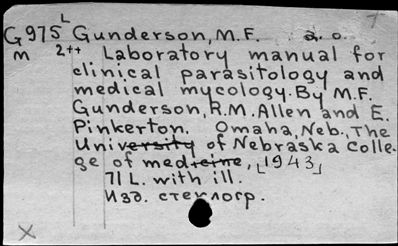 G975 L Gunderson, M.F. a. o.
m 2++ Laboratory manual for
clinical parasitology and
medical mycology. By M.F.
Gunderson, R.M. Allen and E.
Pinkerton. Omaha, Neb., The
University of Nebraska Colle-
ge of medicine, [1943]
71 L. with ill.
Изд. стеклогр.